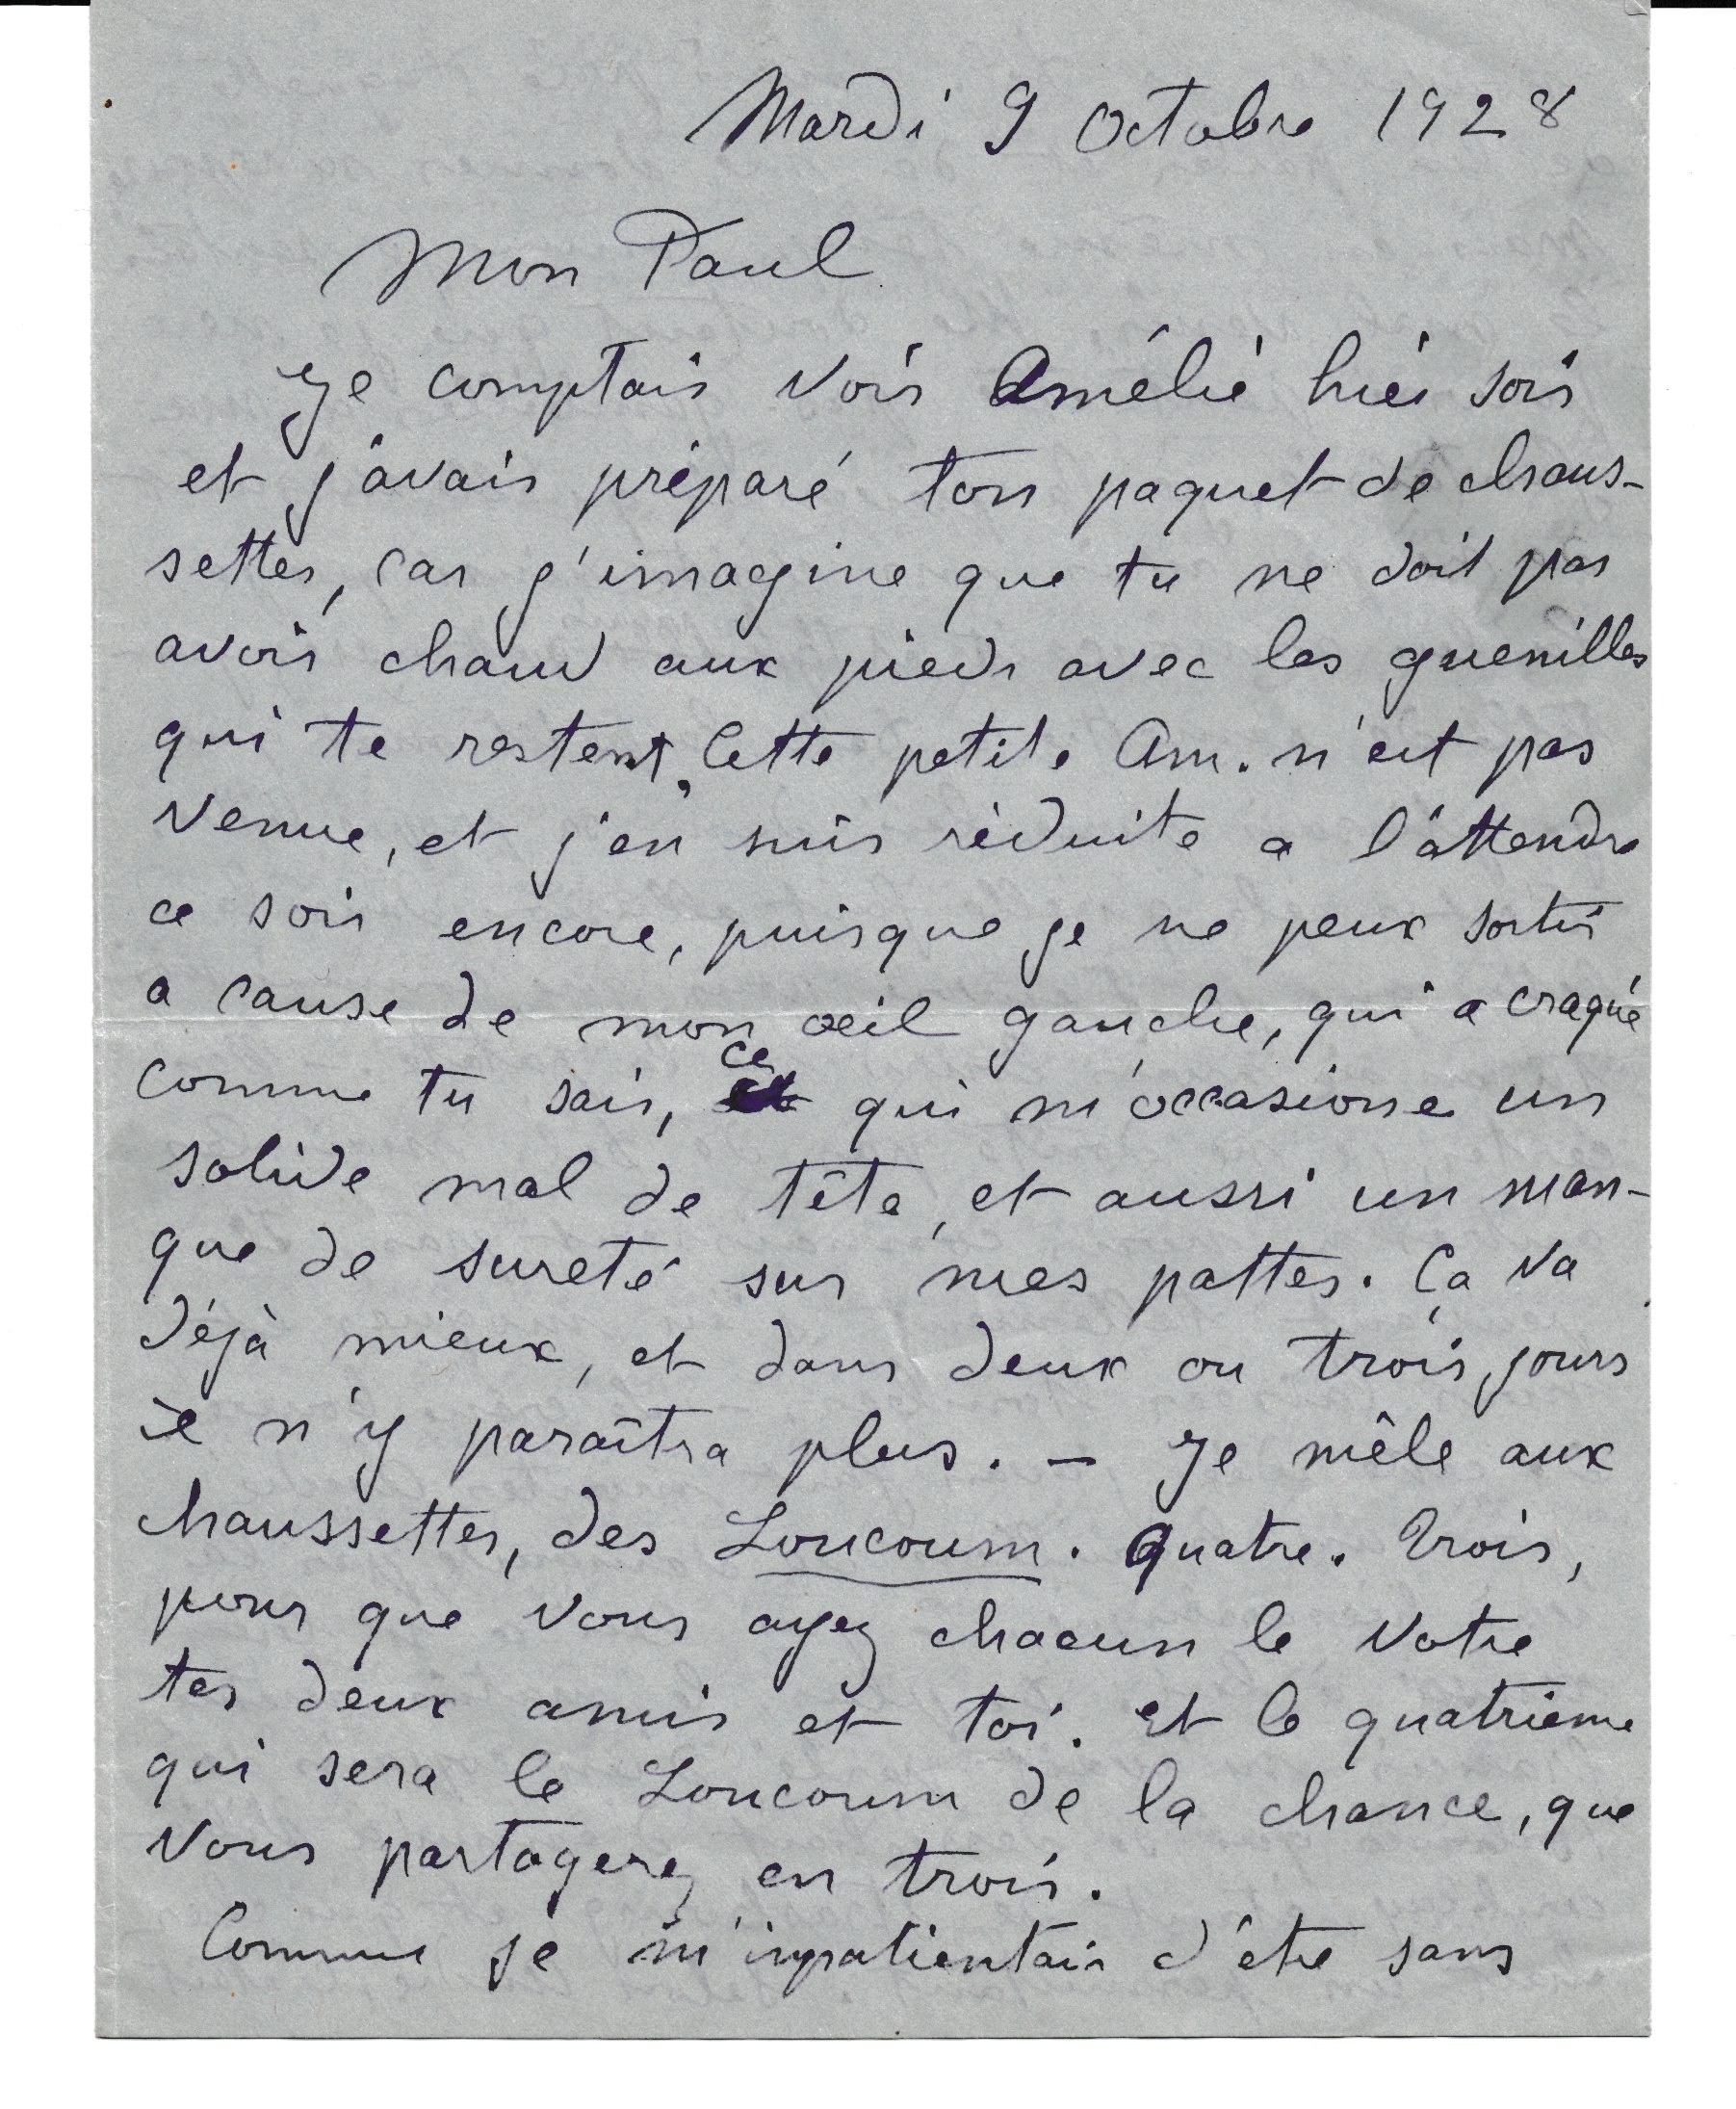 Mardi 9 Octobre 1928
Mon Paul
Je comptais voir Amélie hier soir
et j'avais préparé ton paquet de chaus-
settes, car j'imagine que tu ne doit pas
avoir chaud aux pieds avec les guenilles
qui te restent. Cette petite Am. n'est pas
venue, et j'en suis réduite a l'attendre
ce soir encore, puisque je ne peux sortir
a cause de mon œil gauche, qui a craqué
comme tu sais, ce qui m'occasione un
solide mal de tête, et aussi un man-
que de sureté sur mes pattes. Ça va
déjà mieux, et dans deux ou trois jours
il n'y paraîtra plus. — Je mêle aux
chaussettes, des Loucoum. Quatre. Trois,
pour que vous ayez chacun le votre
tes deux amis et toi. Et le quatrieme
qui sera le Loucoum de la chance, que
vous partagerez en trois.
Comme je m'impatientais d'être sans